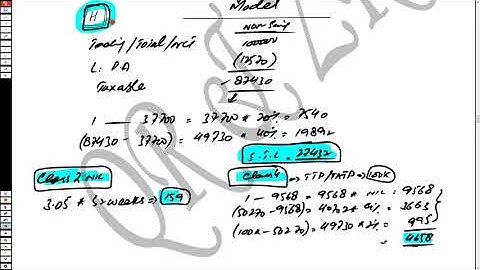 Model
H
NON Saving
Trading/Total/Net 100000
L: PA (12570)
Taxable 87430
1 — 37700 = 37700 * 20% = 7540
(87430 - 37700) = 49730 * 40% = 19892
I.T.L = 27432
Class 2 NIC
3.05 * 52 weeks => 159
Class 4 => TTP/TATP => 100K
1 - 9568 = 9568 * NIL : 9568
(50270-9568) = 40702 * 9% = 3663
(100K-50270) = 49730 * 2% = 995
4658
QR & ZR